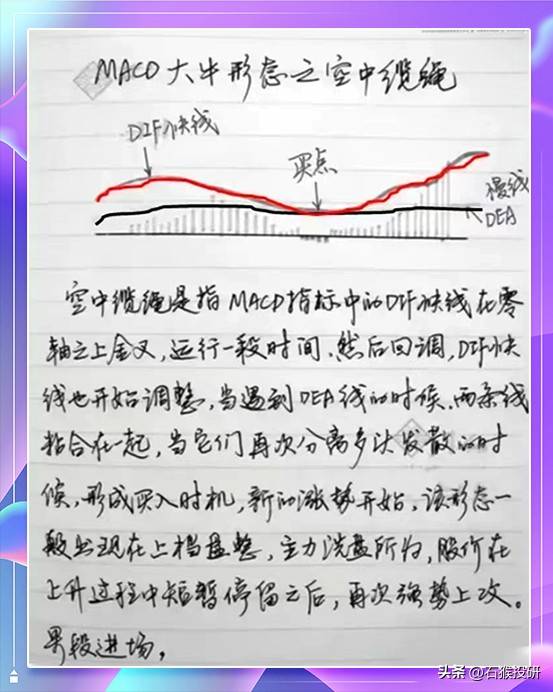 MACD大牛形态之空中缆绳
DIF快线
买点
慢线
DEA
空中缆绳是指MACD指标中的DIF快线在零
轴之上金叉，运行一段时间，然后回调，DIF快
线也开始调整，当遇到DEA线的时候，两条线
粘合在一起，当它们再次分离多头发散的时
候，形成买入时机，新的涨势开始，该形态一
般出现在上档盘整，主力洗盘所为，股价在
上升过程中短暂停留之后，再次强势上攻。
果段进场，
头条 @石猴投研